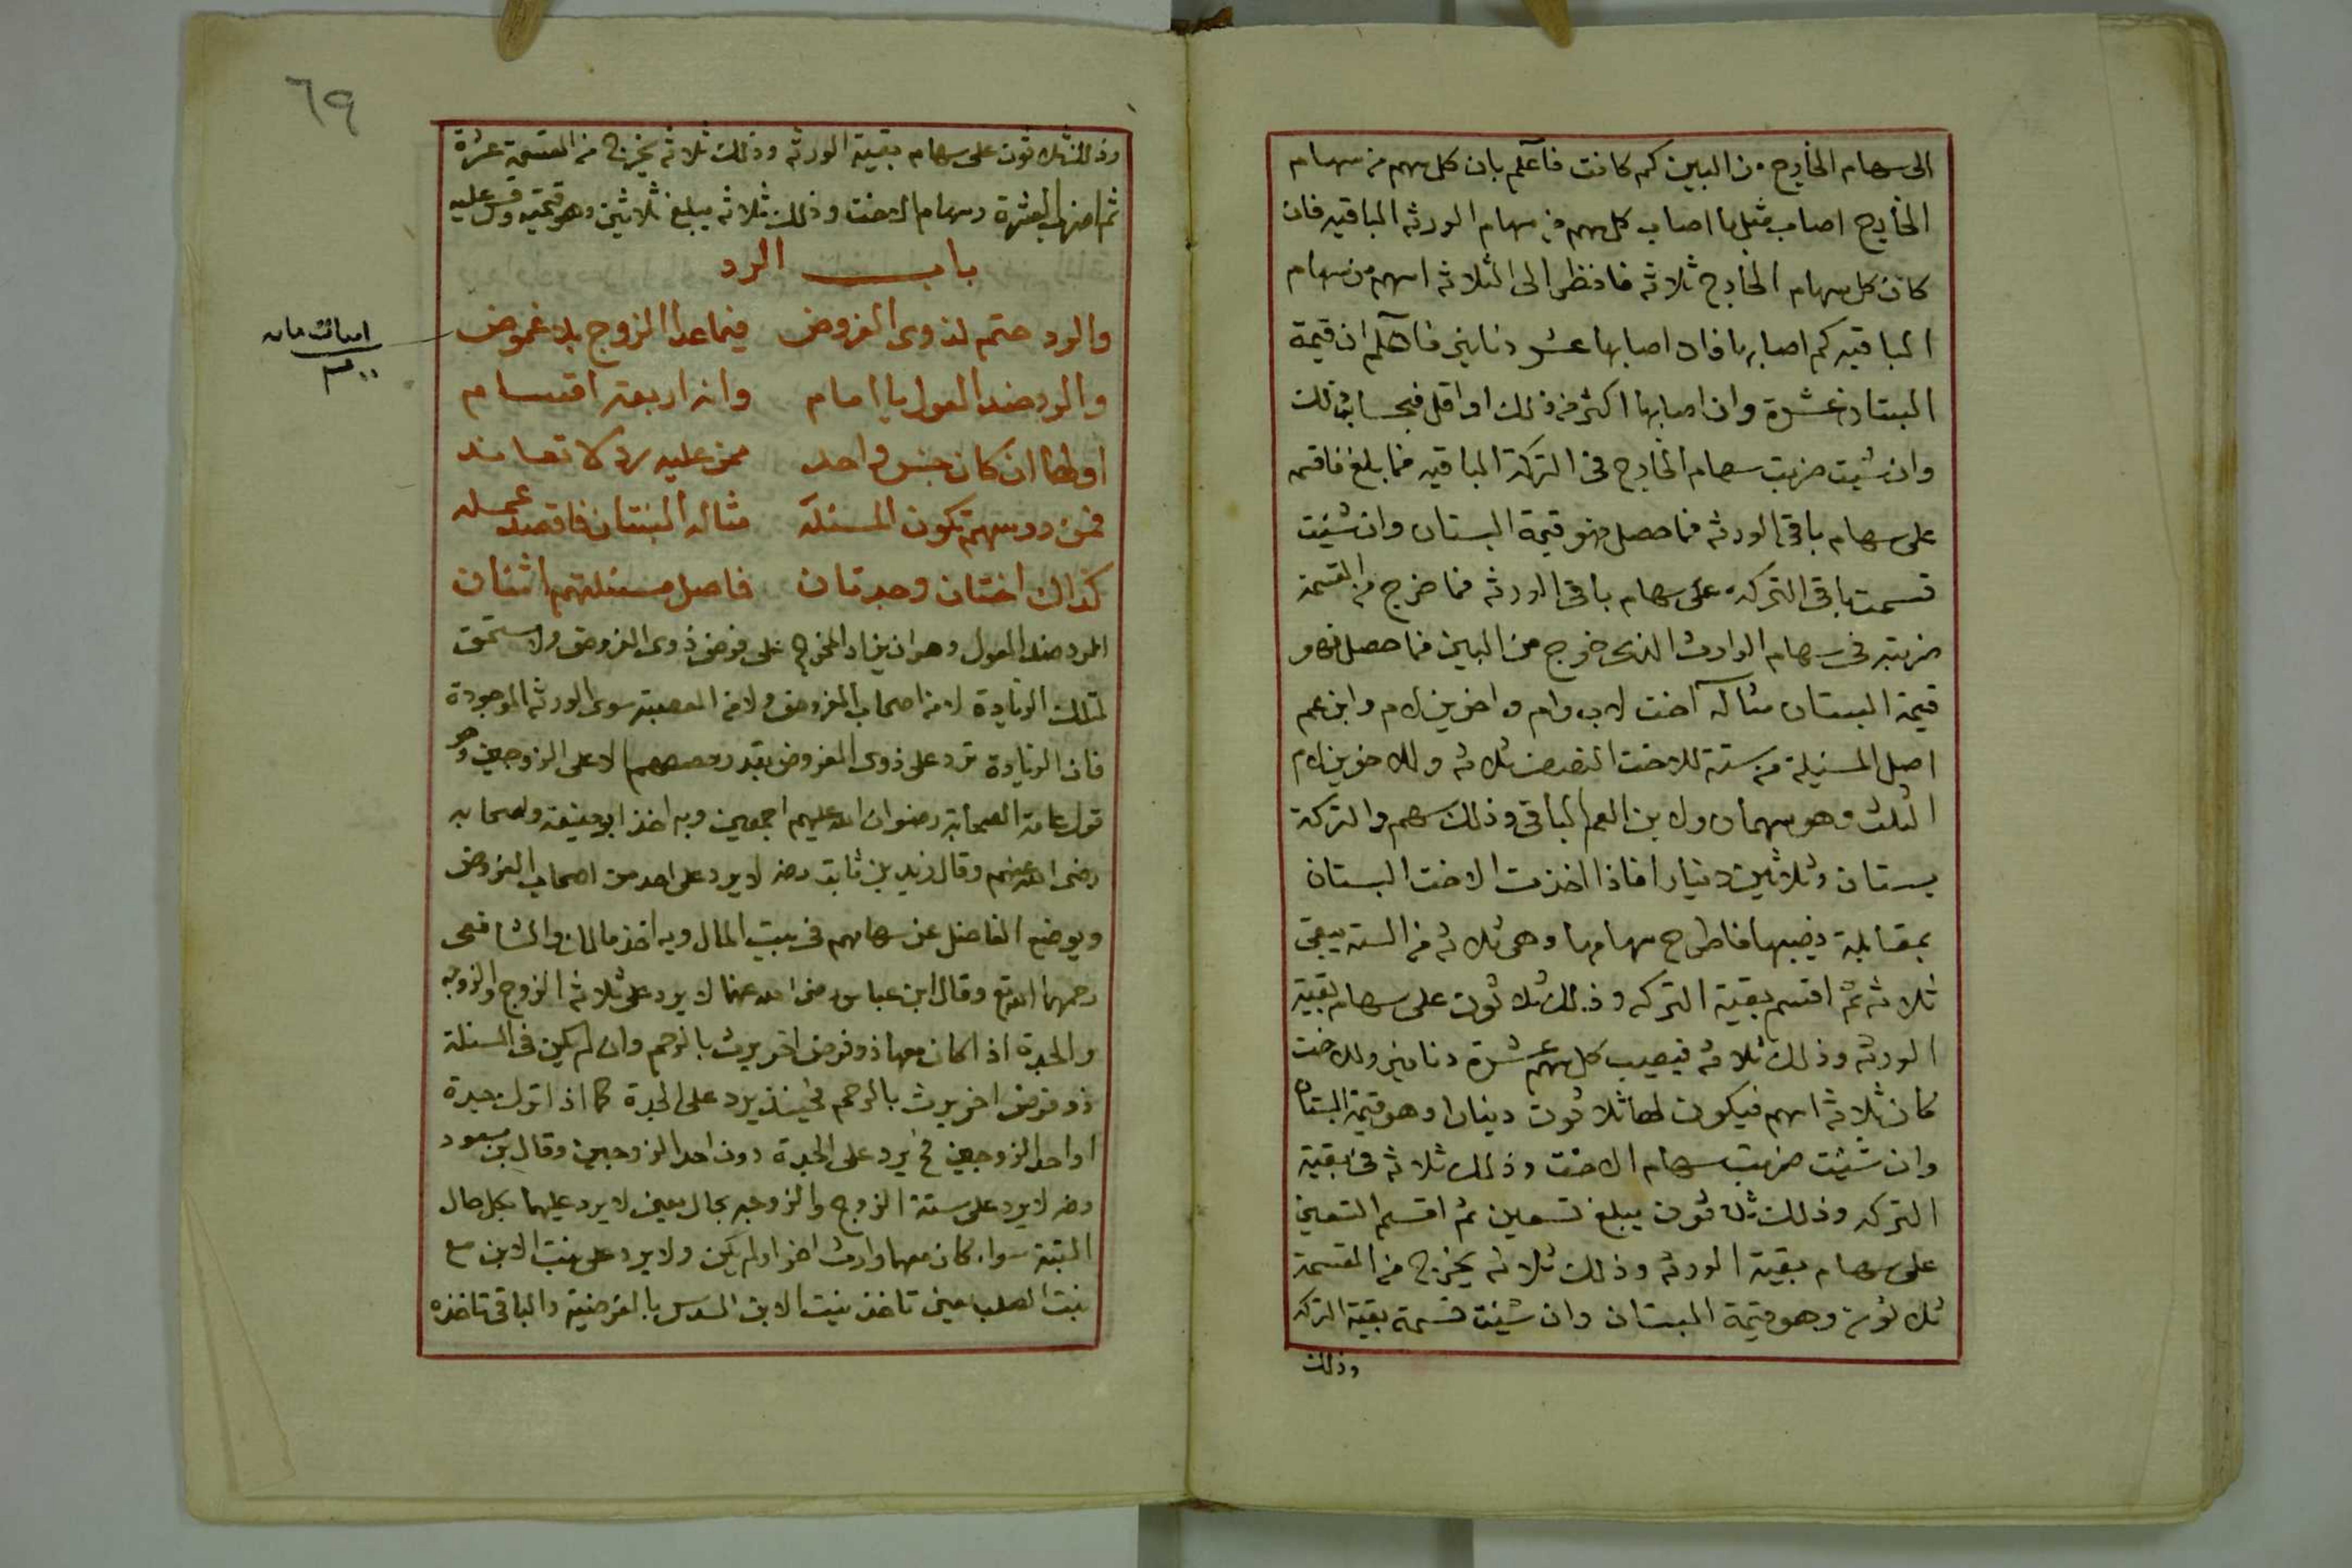 الى سهام الخارج من البين كم كانت فاعلم بان كل سهم من سهام
الخارج اصاب مثل ما اصاب كل سهم من سهام الورثه الباقيه فان
كان كل سهام الخارج ثلاثه فانظر الى الثلاثه اسهم من سهام
الباقيه كم اصابها فان اصابها عشر دنانير فاعلم ان قيمة
البستان عشرة وان اصابها اكثر من ذلك او اقل فبحساب ذلك
وان شيت ضربت سهام الخارج فى التركة الباقيه فما بلغ فاقسمه
على سهام باقى الورثه فما حصل فهو قيمة البستان وان شئت
قسمت باقى التركه على سهام باقى الورثه فما خرج من القسمة
ضربته فى سهام الوارث الذى خرج من البين فما حصل فهو
قيمة البستان مثاله اخت لاب وام واخوين لام وابن عم
اصل المسئلة من ستة للاخت النصف ثلاثه وللاخوين لام
الثلث وهو سهمان ولابن العم الباقى وذلك سهم والتركة
بستان وثلاثين دينارا فاذا اخذت الاخت البستان
بمقابلة نصيبها فاطرح سهامها وهى ثلاثه من السته يبقى
ثلاثه ثم اقسم بقية التركه وذلك ثلاثون على سهام بقية
الورثه وذلك ثلاثه فيصيب كل سهم عشرة دنانير وللاخت
كان ثلاثه اسهم فيكون لها ثلاثون دينارا وهو قيمة البستان
وان شئت ضربت سهام الاخت وذلك ثلاثه فى بقية
التركه وذلك ثلاثون يبلغ تسعين ثم اقسم التسعين
على سهام بقية الورثه وذلك ثلاثه يخرج من القسمة
ثلاثون وهو قيمة البستان وان شئت قسمة بقية التركه
وذلك
٦٩
وذلك ثلاثون على سهام بقية الورثه وذلك ثلاثه يخرج من القسمة عشرة
ثم اضرب العشرة وسهام الاخت وذلك ثلاثه يبلغ ثلاثين وهو قيمته وقس عليه
باب الرد
والرد حتم لذوى الفروض فيما عدا الزوج بلا غموض
والرد ضد العول يا امام وانه اربعة اقسام
اولها ان كان جنس واحد ممن عليه رد لا تعاند
فمن رؤسهم تكون المسئلة مثاله البنتان فاقصد عمله
كذاك اختان وجدتان فاصل مسئلتهم اثنان
الرد ضد العول وهو ان يزاد المخرج على فرض ذوى الفروض ولا مستحق
لتلك الزيادة لا من اصحاب الفروض ولا من العصبة سوى الورثه الموجودة
فان الزيادة ترد على ذوى الفروض بقدر حصصهم الا على الزوجين وهو
قول عامة الصحابة رضوان الله عليهم اجمعين وبه اخذ ابو حنيفة واصحابه
رضى الله عنهم وقال زيد بن ثابت رضه لا يرد على احد من اصحاب الفروض
ويوضع الفاضل عن سهامهم فى بيت المال وبه اخذ مالك والشافعى
رحمهما الله تع وقال ابن عباس رضى الله عنهما لا يرد على ثلاثه الزوج والزوجه
والجدة اذا كان معها ذو فرض اخر يرث بالرحم وان لم يكن فى المسئلة
ذو فرض اخر يرث بالرحم فحينئذ يرد على الجدة كما اذا ترك جدة
او احد الزوجين فح يرد على الجدة دون احد الزوجين وقال بن مسعود
رضه لا يرد على ستة الزوج والزوجه بحال يعنى لا يرد عليهما بكل حال
البتة سواء كان معهما وارث اخر او لم يكن ولا يرد على بنت الابن مع
بنت الصلب يعنى تاخذ بنت الابن السدس بالفرضية والباقى تاخذه